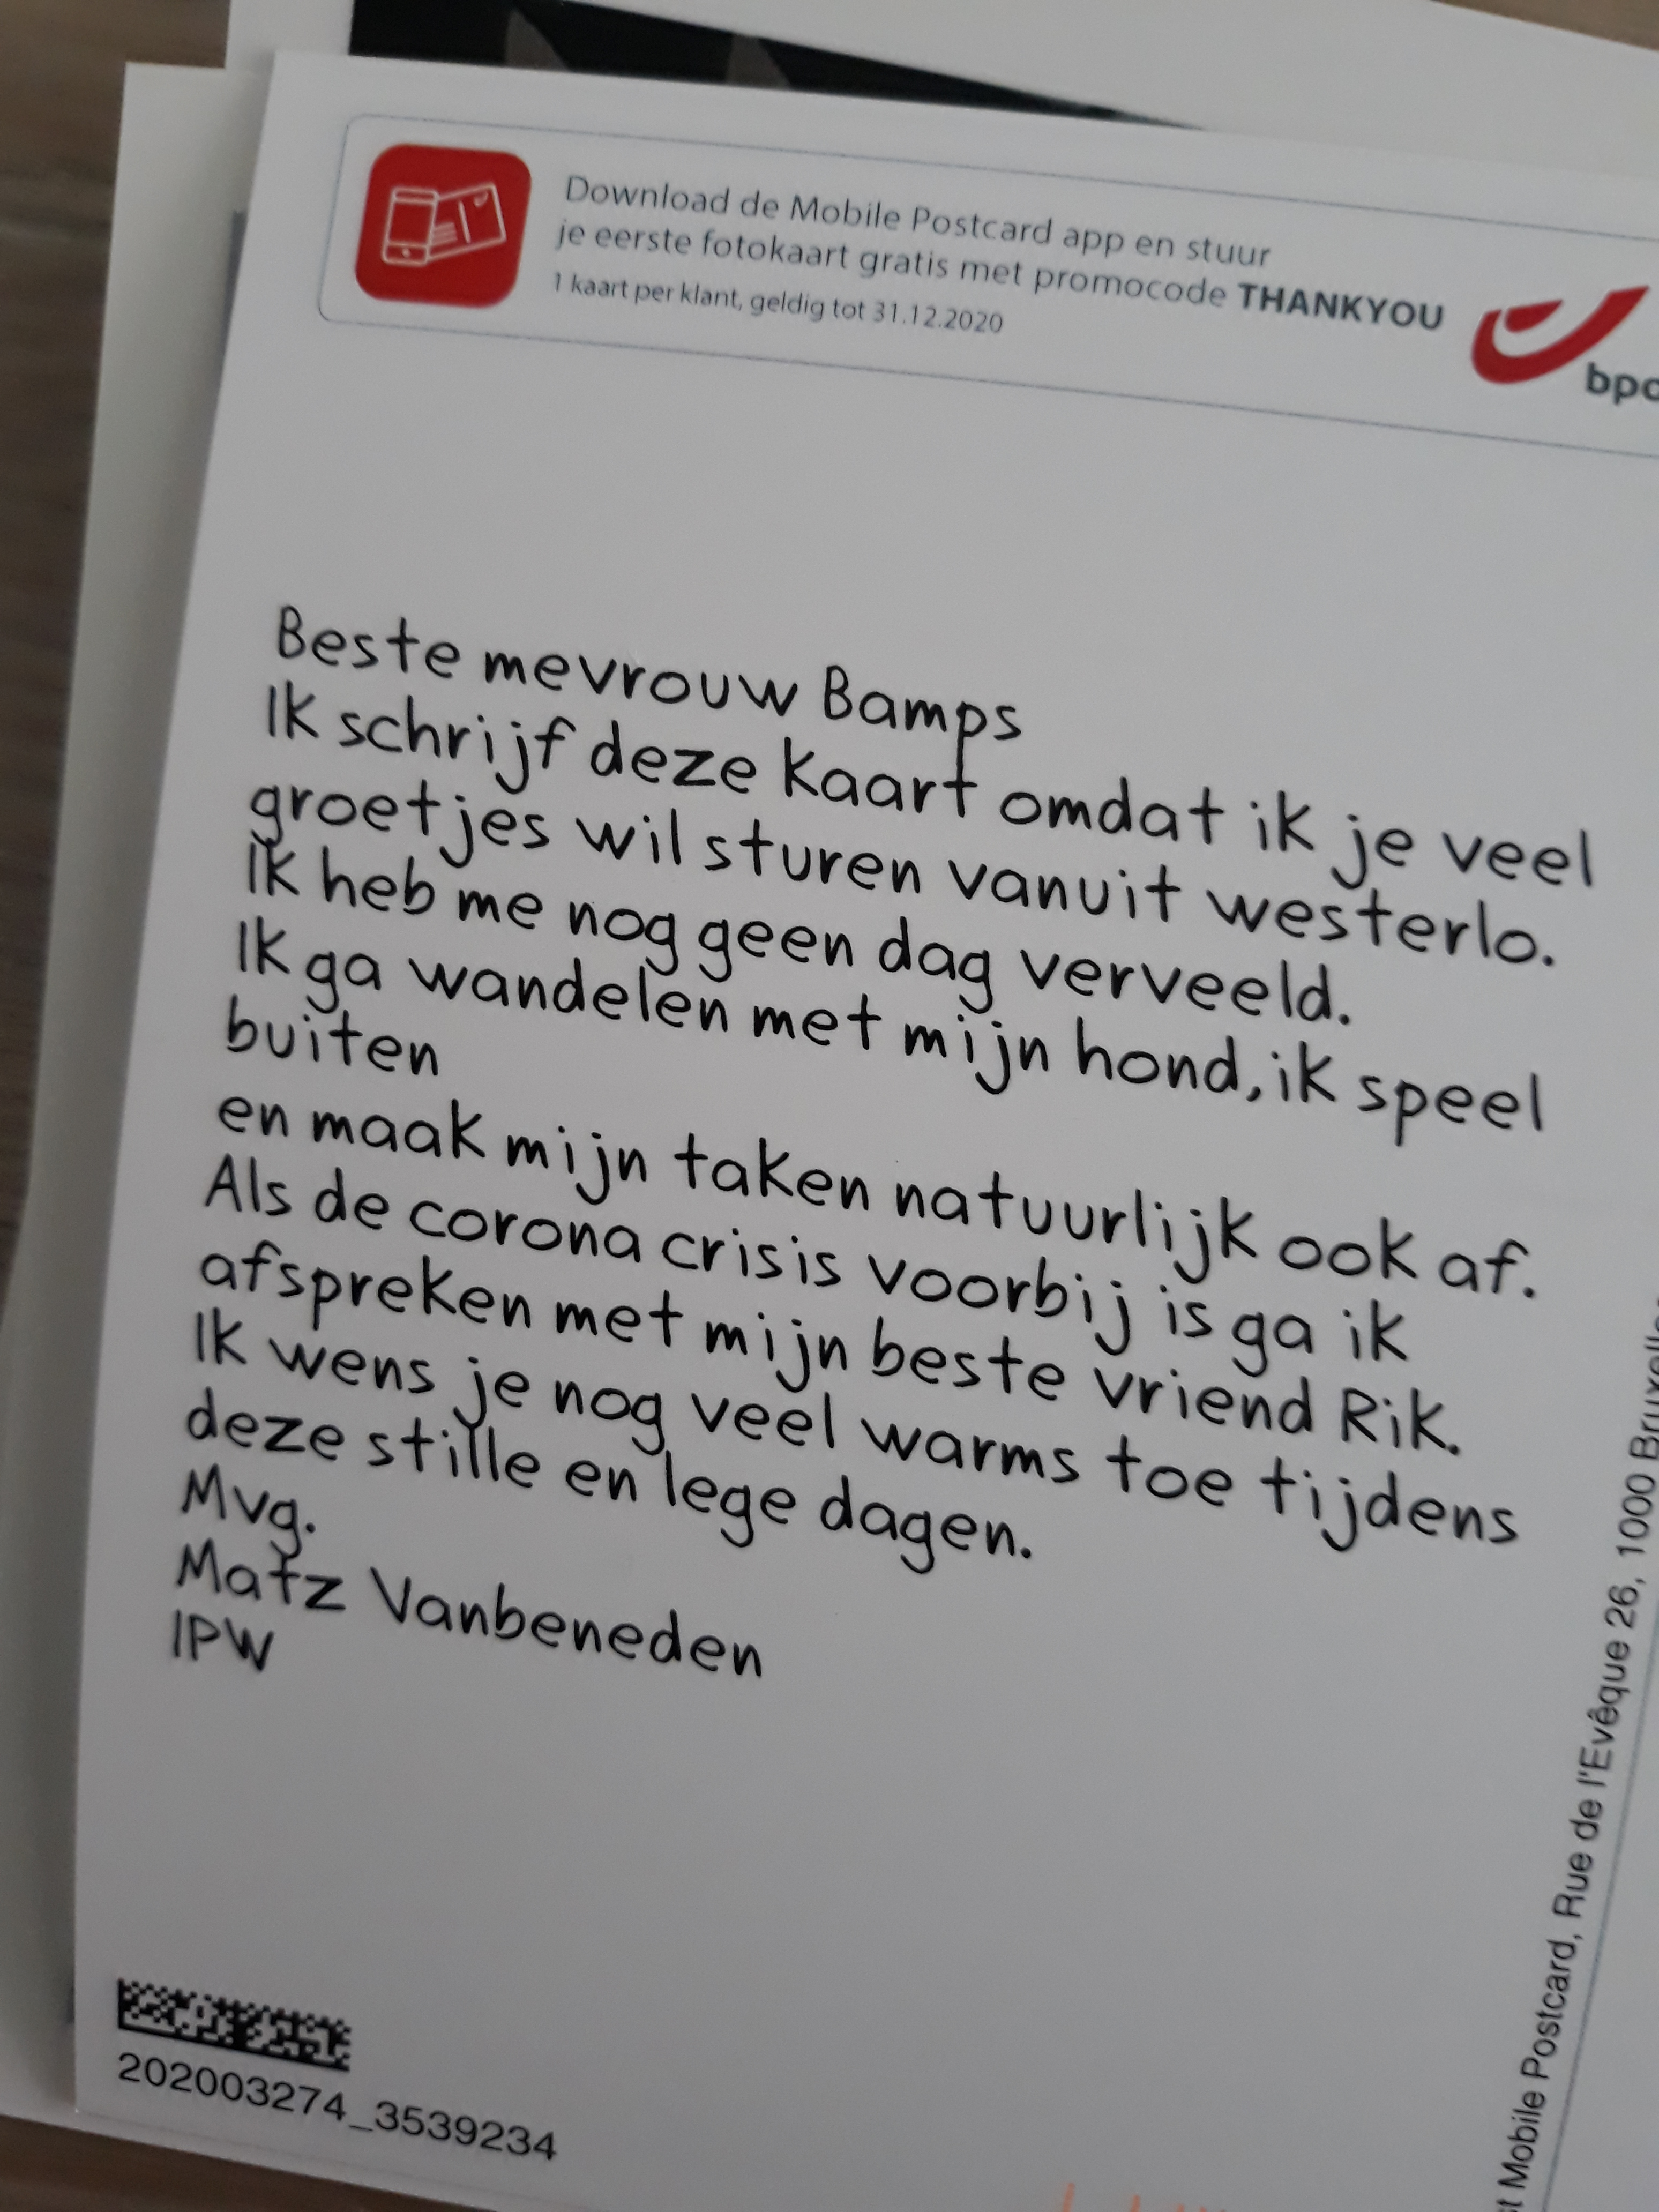 Download de Mobile Postcard app en stuur
je eerste fotokaart gratis met promocode THANKYOU
1 kaart per klant, geldig tot 31.12.2020
Beste mevrouw Bamps
Ik schrijf deze kaart omdat ik je veel
groetjes wil sturen vanuit westerlo.
Ik heb me nog geen dag verveeld.
Ik ga wandelen met mijn hond, ik speel
buiten
en maak mijn taken natuurlijk ook af.
Als de corona crisis voorbij is ga ik
afspreken met mijn beste vriend Rik.
Ik wens je nog veel warms toe tijdens
deze stille en lege dagen.
Mvg.
Matz Vanbeneden
IPW
202003274_3539234
Mobile Postcard, Rue de l'Evêque 26, 1000